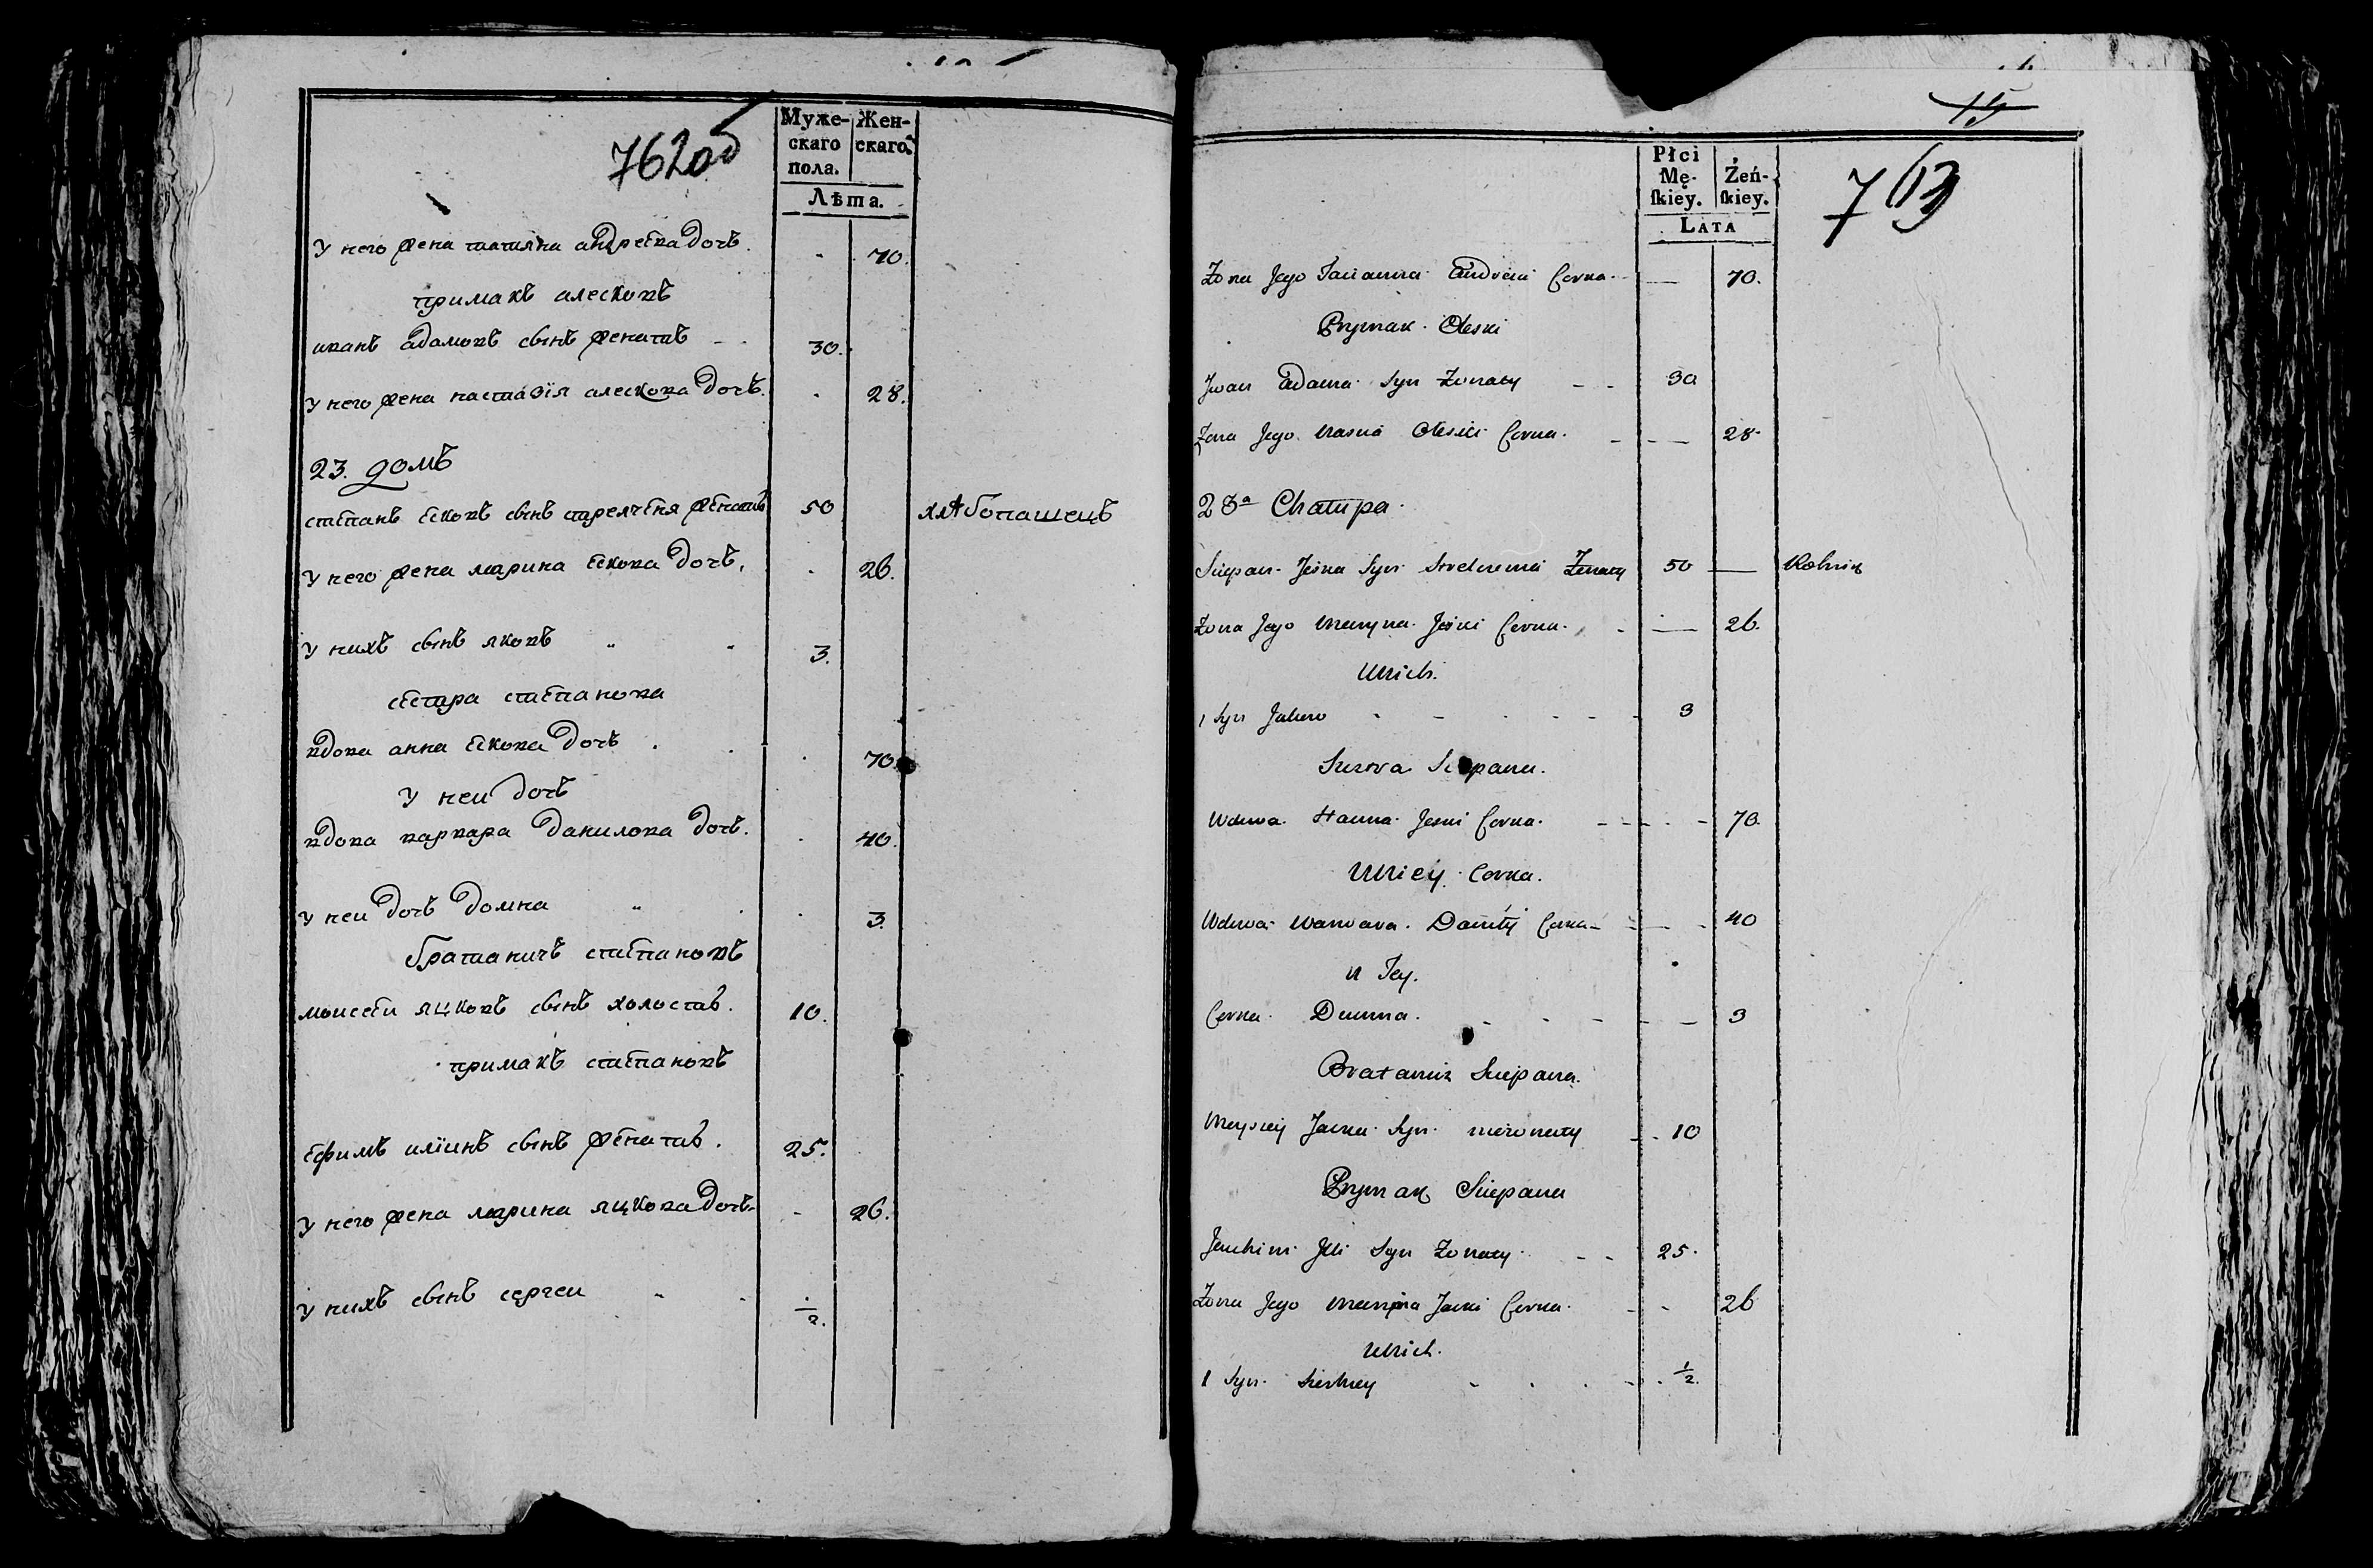 762об
Муже-
скаго
пола.
Жен-
скаго.
Лѣта.
у него жена татияна андреева дочь. - 70.
примакъ алесковъ
иванъ адамовъ сынъ женатъ - - 30.
у него жена настасїя алескова дочь. - 28.
23. домъ
степанъ есковъ сынъ стрелченя женатъ 50 хлѣбопашецъ
у него жена марина ескова дочь. - 26.
у нихъ сынъ яковъ 3.
сестра степанова
вдова анна ескова дочь 70
у неи дочь
вдова варвара данилова дочь. - 40.
у неи дочь домна - 3.
братаничъ степановъ
моисеи яцковъ сынъ холостъ. 10.
примакъ степановъ
ефимъ илїинъ сынъ женатъ. 25.
у него жена марина яцкова дочь. - 26.
у нихъ сынъ сергеи 1/2.
15
763
Płci
Mę-
ſkiey.
Żeń-
ſkiey.
LATA
Zona Jego Tacianna Andreia Corka - 70.
Prymak Oleski
Jwan Adama Syn Zonaty - - 30
Zona Jego Nasta Oleski Corka. - - 28.
23a Chałupa.
Sciepan Jeska Syn Strelczenia Zonaty 50 — Rolnik
Zona Jego Maryna Jeski Corka. - — 26.
U Nich.
1 Syn Jakow - - - 3
Siestra Sciepana.
Wdowa Hanna Jeski Corka. - - - 70.
U Niey Corka.
Wdowa Warwara Daniły Corka - - 40
U Jey.
Corka Dumna. - - - 3
Brataniz Sciepana.
Moysiey Jacka Syn niezonaty - 10
Prymak Sciepana
Jauchim Jlii Syn Zonaty - - 25.
Zona Jego Maryna Jacki Corka. - - 26
U Nich.
1 Syn Sierhiey - - - 1/2.